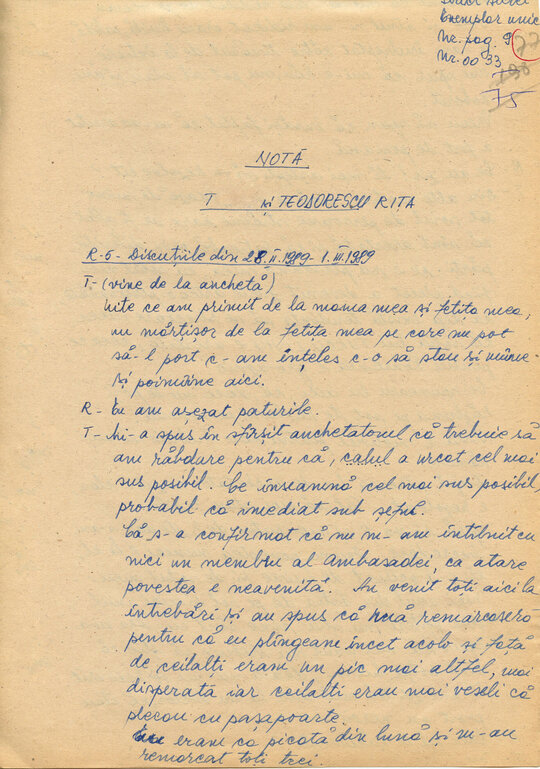 Strict secret
Exemplar unic
Nr. pag. 9
Nr. 0033
75
NOTĂ
T și TEODORESCU RIȚA
R-5- Discuțiile din 28.II.1989-1.III.1989
T- (vine de la anchetă)
Uite ce am primit de la mama mea și fetița mea,
un mărțișor de la fetița mea pe care nu pot
să-l port c-am înțeles c-o să stau și mîine
și poimîine aici.
R- Eu am așezat paturile.
T- Mi-a spus în sfîrșit anchetatorul că trebuie să
am răbdare pentru că, calul a urcat cel mai
sus posibil. Ce înseamnă cel mai sus posibil,
probabil că imediat sub șeful.
Că s-a confirmat că nu m-am întîlnit cu
nici un membru al Ambasadei, ca atare
povestea e neavenită. Au venit toți aici la
întrebări și au spus că mă remarcaseră
pentru că eu plîngeam încet acolo și față
de ceilalți eram un pic mai altfel, mai
disperată iar ceilalți erau mai veseli că
plecau cu pașapoarte.
Eu eram ca picată din lună și m-au
remarcat toți trei.